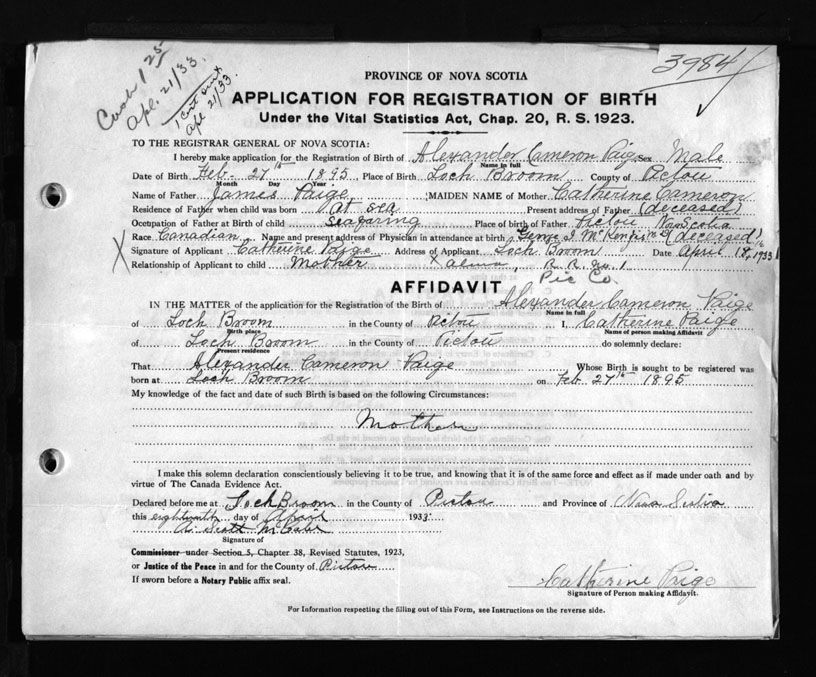 Cash 1 25
Apl. 21/33
1 Cert sent
Apl 21/33.
3984
PROVINCE OF NOVA SCOTIA
APPLICATION FOR REGISTRATION OF BIRTH
Under the Vital Statistics Act, Chap. 20, R. S. 1923.
TO THE REGISTRAR GENERAL OF NOVA SCOTIA:
I hereby make application for the Registration of Birth of Alexander Cameron Paige Sex Male
Name in full
Date of Birth Feb. 27th 1895 Place of Birth Loch Broom County of Pictou
Month Day Year
Name of Father James Paige MAIDEN NAME of Mother Catherine Cameron
Residence of Father when child was born at sea Present address of Father (deceased)
Occupation of Father at Birth of child seafaring Place of birth of Father Pictou Nova Scotia
Race Canadian Name and present address of Physician in attendance at birth George I McKenzie (deceased)
Signature of Applicant Catherine Paige Address of Applicant Loch Broom Date April 18, 1933
X Relationship of Applicant to child Mother Lalma, R. R. No. 1
Pic Co.
AFFIDAVIT
IN THE MATTER of the application for the Registration of the Birth of Alexander Cameron Paige
Name in full
of Loch Broom in the County of Pictou I, Catherine Paige
Birth place Name of person making Affidavit
of Loch Broom in the County of Pictou do solemnly declare:
Present residence
That Alexander Cameron Paige Whose Birth is sought to be registered was
born at Loch Broom on Feb. 27th 1895
My knowledge of the fact and date of such Birth is based on the following Circumstances:
Mother
I make this solemn declaration conscientiously believing it to be true, and knowing that it is of the same force and effect as if made under oath and by
virtue of The Canada Evidence Act.
Declared before me at Loch Broom in the County of Pictou and Province of Nova Scotia
this eighteenth day of April 1933
A. Scott McCabe
Signature of
Commissioner under Section 5, Chapter 38, Revised Statutes, 1923,
or Justice of the Peace in and for the County of Pictou
If sworn before a Notary Public affix seal.
Catherine Paige
Signature of Person making Affidavit.
For Information respecting the filling out of this Form, see Instructions on the reverse side.